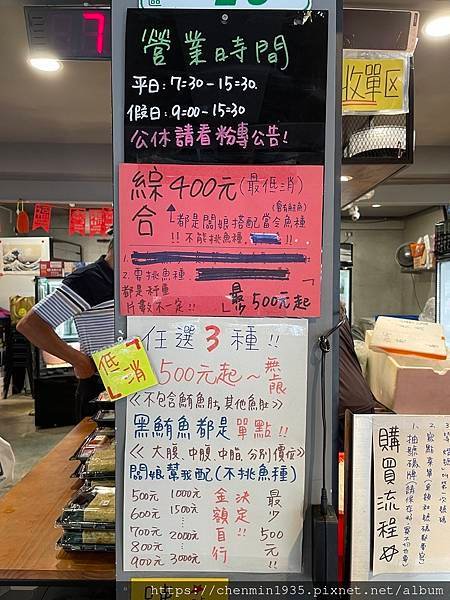 7
營業時間
平日：7=30-15=30.
假日：9=00-15=30
公休請看粉專公告！
收單区
綜合 400元(最低消)
(會有鮭魚)
都是闆娘搭配當令魚種
!!不能挑魚種,
1.
2. 要挑魚種
都是
片數不一定!!
最少500元起
任選3種!!
低消
500元起~無上限
《不包含鮪魚肚,其他魚肚》
黑鮪魚都是單點!!
《大腹、中腹、中脂分別價位》
闆娘幫我配(不挑魚種)
500元 1000元
600元 1500元
700元 2000元
800元
900元 3000元
金額自行決定!!
最少500元!!
購買流程
1. 抽號碼牌
2.
3. 等
https://chenmin1935.pixnet.net/album